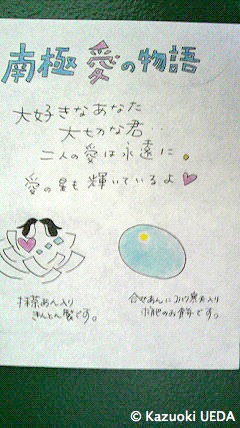 南極 愛の物語
大好きなあなた
大切な君…
二人の愛は永遠に。
愛の星も 輝いているよ
抹茶あん入り
きんとん製です。
合せあんに
求肥のお餅です。
© Kazuoki UEDA